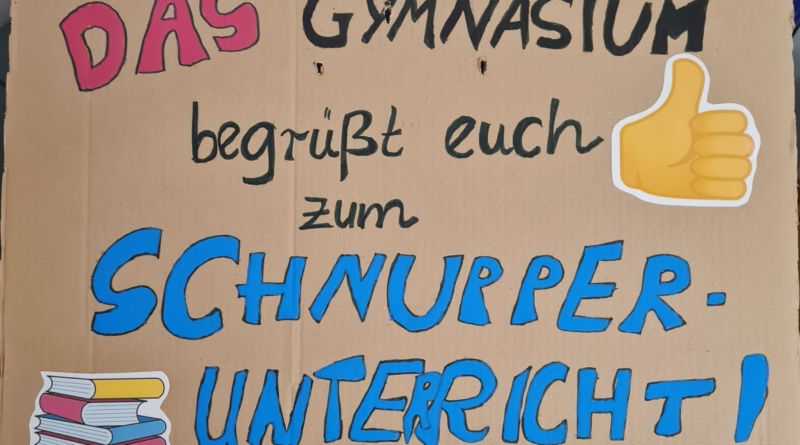 DAS GYMNASIUM
begrüßt euch
zum
SCHNUPPER-
UNTERRICHT!